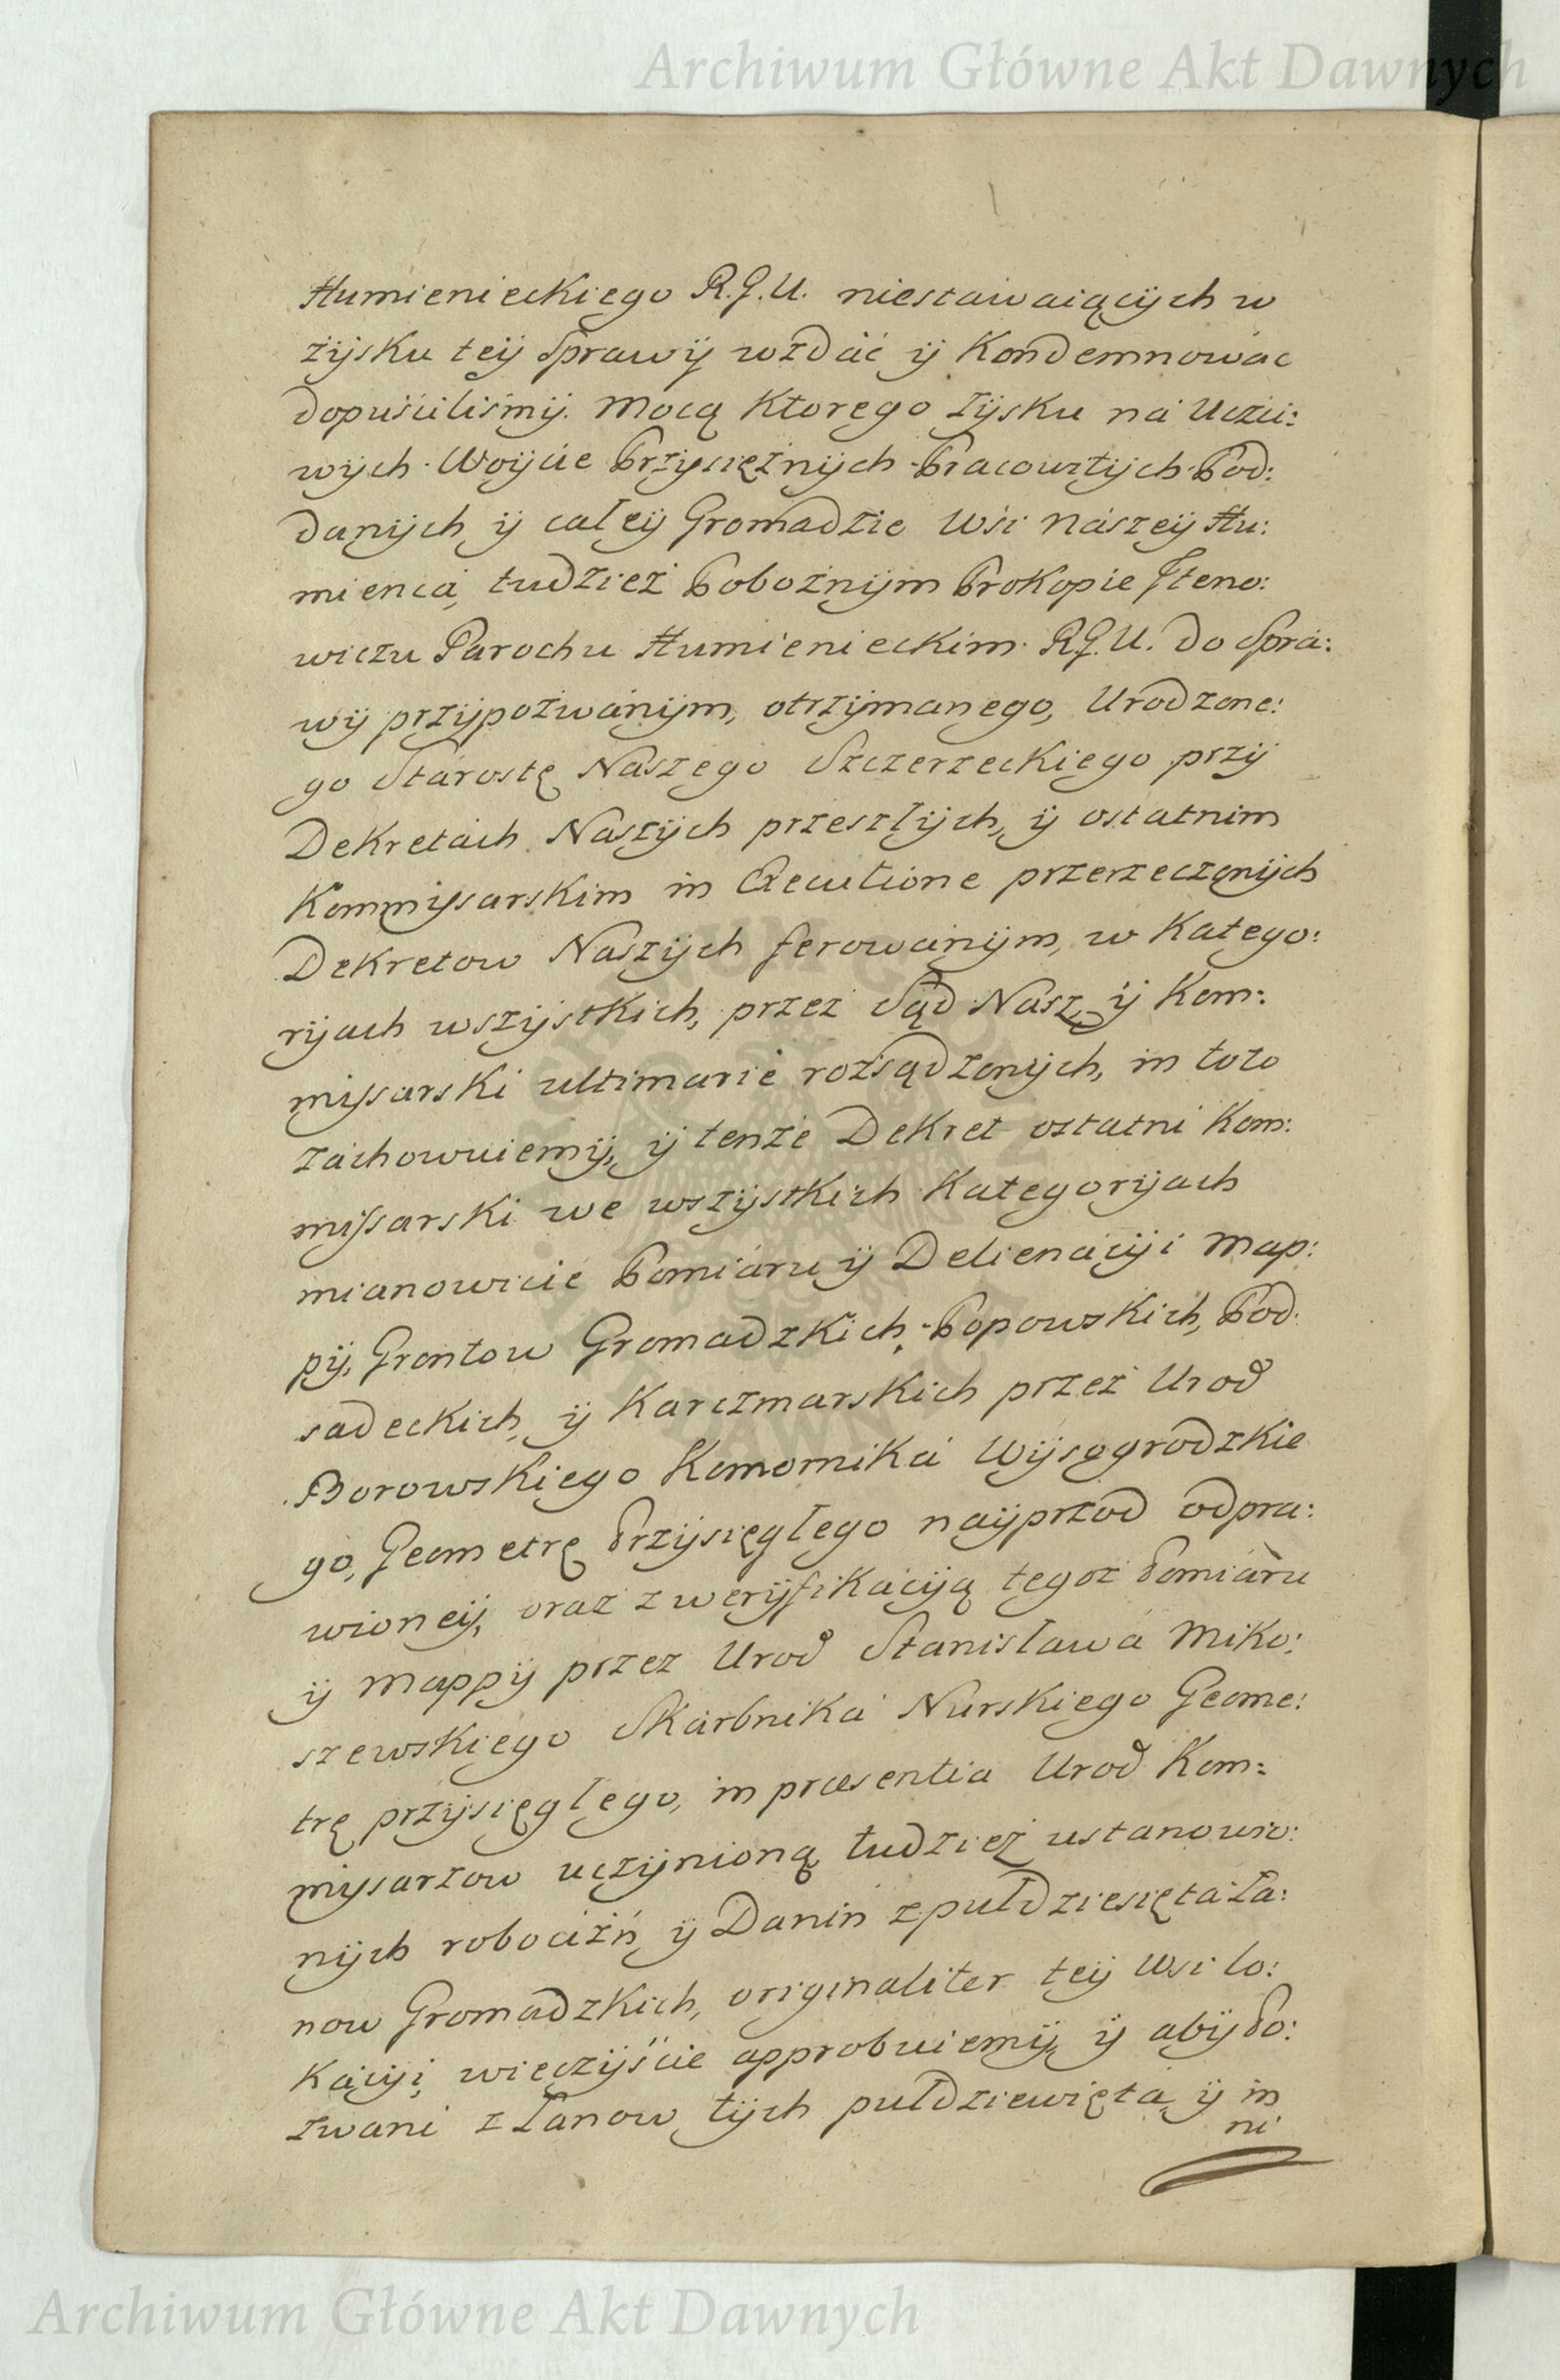 Archiwum Główne Akt Dawnych
Humienieckiego R.G.U. niestawaiących w
zysku teÿ Sprawÿ wzdáć ÿ Kondemnowác
dopuściliśmÿ. Mocą Ktorego zÿsku ná Uczći:
wÿch Woÿcie Przÿsiężnÿch Pracowitÿch Pod:
danÿch ÿ całeÿ Gromadzie Wśi Nászeÿ Hu:
mienca, tudzież Pobożnÿm Prokopie Steno:
wiczu Parochu Humienieckim R.G.U. do Sprá:
wÿ przÿpozwánÿm, otrzÿmanego, Urodzone:
go Stárostę Nászego Szczerzeckiego przÿ
Dekretách Nászÿch przeszłÿch, ÿ ostatnim
Kommissarskim in Executione przerzeczonÿch
Dekretow Nászÿch ferowánÿm, w Katego:
rÿach wszÿstkich, przez Sąd Nász, ÿ Kom:
missarski ultimarie rozsądzonÿch, in toto
záchowuiemÿ, ÿ tenże Dekret ostatni Kom:
missarski we wszÿstkich Kategorÿach
mianowicie Pomiáru ÿ Delienácÿi Map:
pÿ, Grontow Gromadzkich, Popowskich, Pod:
sadeckich, ÿ Karczmarskich przez Urod
Borowskiego Komorniká Wÿsogrodzkie
go, Geometrę Przÿsięgłego naÿprzod odpra:
wioneÿ, oraz z werÿfikácÿą tegoż Pomiáru
ÿ Mappÿ przez Urod Stanisławá Miko:
szewskiego Skárbniká Nurskiego Geome:
trę przÿsięgłego, in præsentia Urod Kom:
missarzow uczÿnioną tudzież ustanowio:
nÿch robocizń ÿ Danin z pułdziesięta Ła:
now Gromadzkich, originaliter teÿ Wsi lo:
kácÿi, wieczÿście approbuiemÿ, ÿ abÿ Po:
zwani z Łanow tÿch pułdziewięta, ÿ in
ni
Archiwum Główne Akt Dawnych